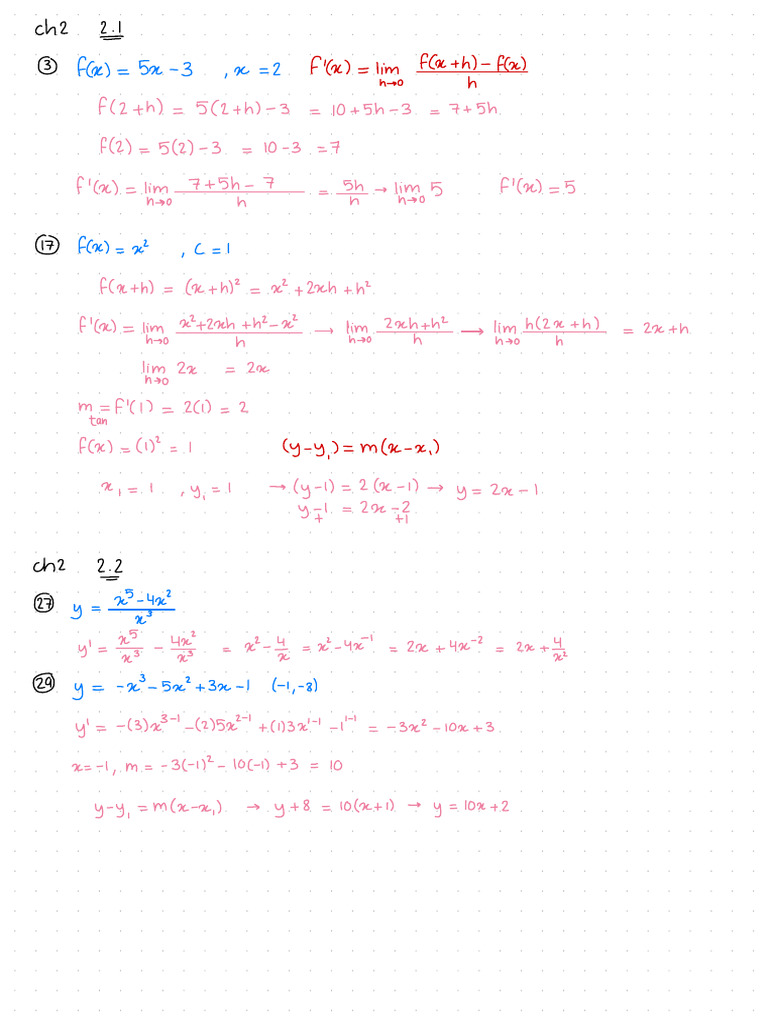 ch2 2.1
③ f(x) = 5x - 3 , x = 2 f'(x) = lim h→0 (f(x+h) - f(x))/h
f(2+h) = 5(2+h) - 3 = 10 + 5h - 3 = 7 + 5h
f(2) = 5(2) - 3 = 10 - 3 = 7
f'(x) = lim h→0 (7 + 5h - 7)/h = 5h/h → lim h→0 5 f'(x) = 5
⑰ f(x) = x² , C = 1
f(x+h) = (x+h)² = x² + 2xh + h²
f'(x) = lim h→0 (x² + 2xh + h² - x²)/h → lim h→0 (2xh + h²)/h → lim h→0 h(2x + h)/h = 2x + h
lim h→0 2x = 2x
m tan = f'(1) = 2(1) = 2
f(x) = (1)² = 1 (y - y₁) = m(x - x₁)
x₁ = 1 , y₁ = 1 → (y - 1) = 2(x - 1) → y = 2x - 1
y - 1 = 2x - 2
+ +1
ch2 2.2
㉗ y = (x⁵ - 4x²)/x³
y' = x⁵/x³ - 4x²/x³ = x² - 4/x = x² - 4x⁻¹ = 2x + 4x⁻² = 2x + 4/x²
㉙ y = -x³ - 5x² + 3x - 1 (-1, -8)
y' = -(3)x³⁻¹ - (2)5x²⁻¹ + (1)3x¹⁻¹ - 1¹⁻¹ = -3x² - 10x + 3
x = -1, m = -3(-1)² - 10(-1) + 3 = 10
y - y₁ = m(x - x₁) → y + 8 = 10(x + 1) → y = 10x + 2